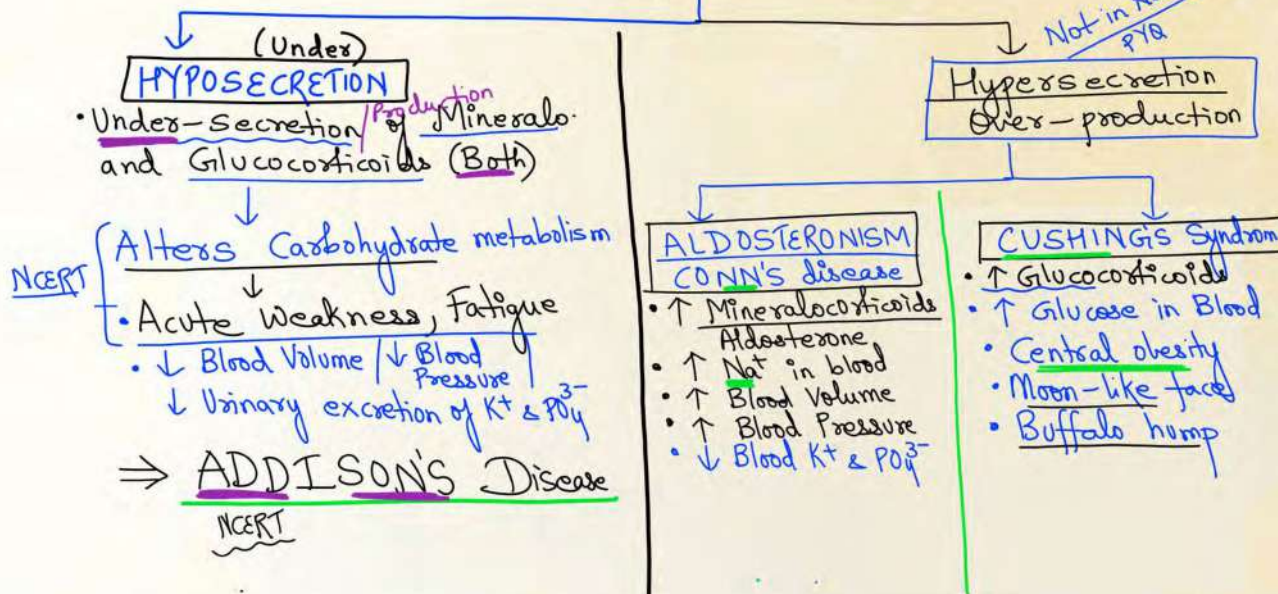 (Under)
HYPOSECRETION
• Under-secretion/Production of Mineralo.
and Glucocorticoids (Both)
NCERT
Alters Carbohydrate metabolism
• Acute Weakness, Fatigue
• ↓ Blood Volume / ↓ Blood Pressure
↓ Urinary excretion of K⁺ & PO₄³⁻
⇒ ADDISON'S Disease
NCERT
Not in
PYQ
Hypersecretion
Over-production
ALDOSTERONISM
CONN'S disease
• ↑ Mineralocorticoids
Aldosterone
• ↑ Na⁺ in blood
• ↑ Blood Volume
• ↑ Blood Pressure
• ↓ Blood K⁺ & PO₄³⁻
CUSHING'S Syndrom
• ↑ Glucocorticoids
• ↑ Glucose in Blood
• Central obesity
• Moon-like face
• Buffalo hump